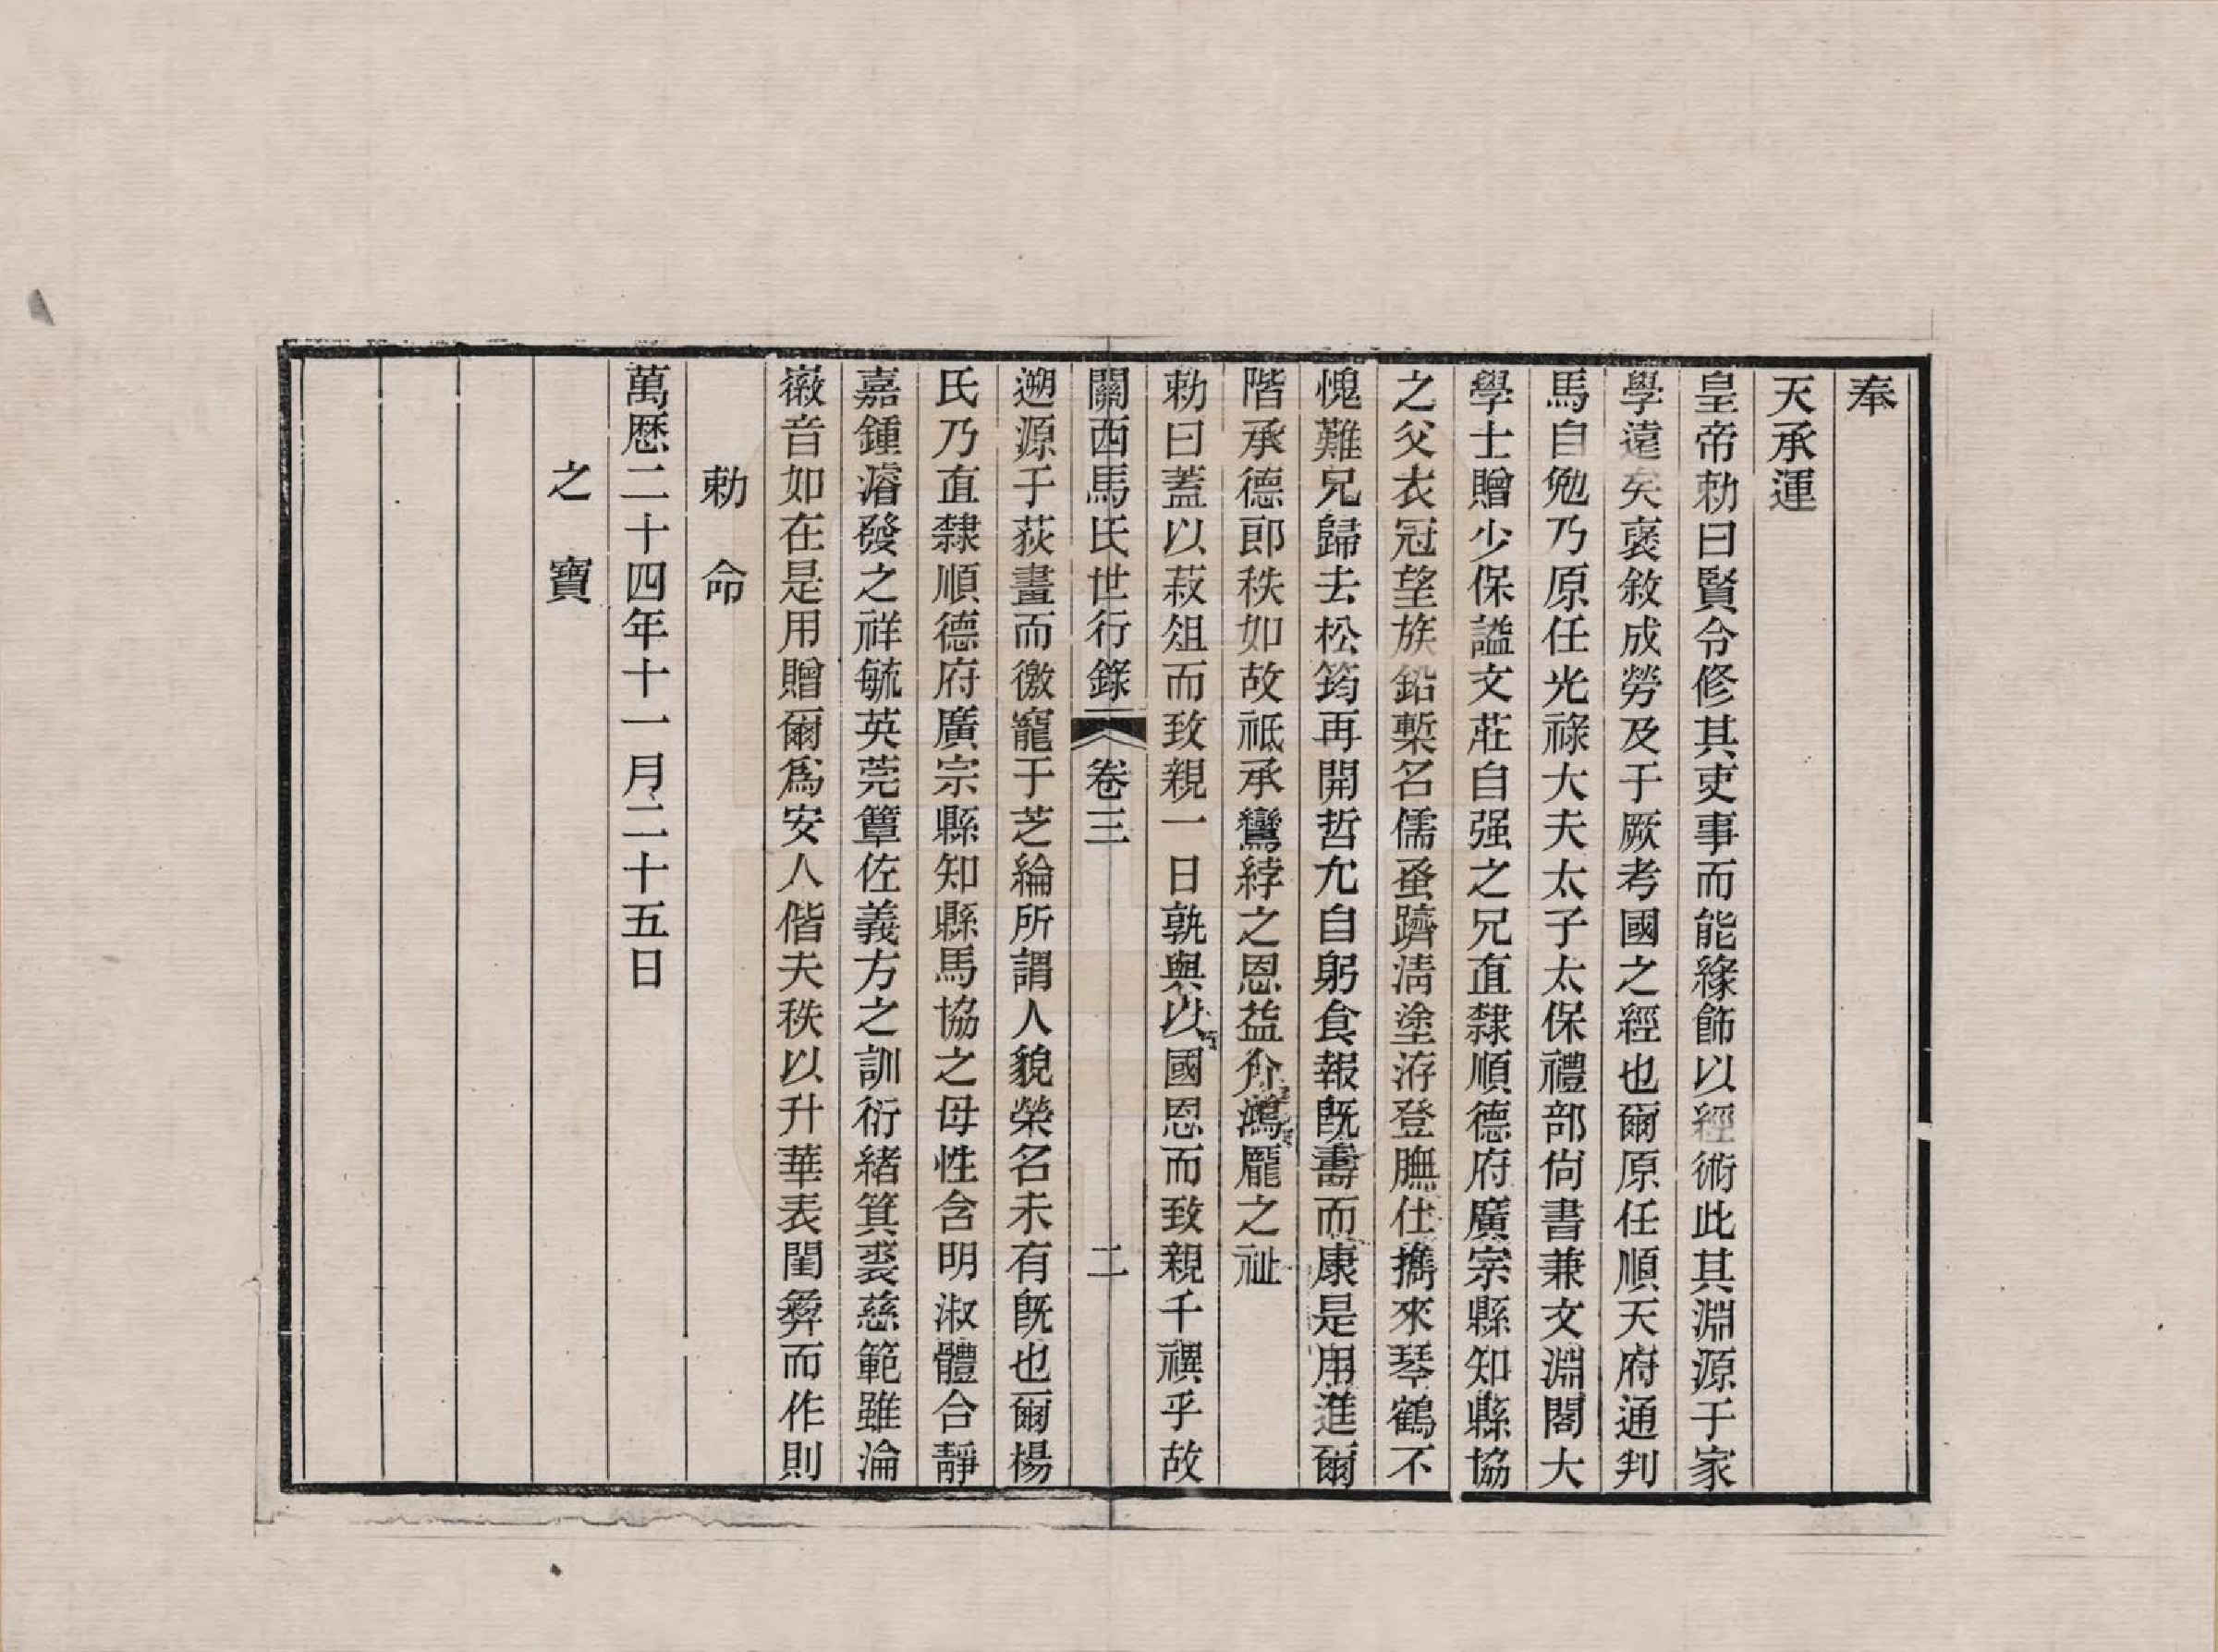 奉
天承運
皇帝勅曰賢令修其吏事而能緣飾以經術此其淵源于家
學遠矣褒敘成勞及于厥考國之經也爾原任順天府通判
馬自勉乃原任光祿大夫太子太保禮部尙書兼文淵閣大
學士贈少保謚文莊自强之兄直隸順德府廣宗縣知縣協
之父衣冠望族鉛槧名儒蚤躋淸塗洊登膴仕攜來琴鶴不
愧難兄歸去松筠再開哲允自躬食報旣壽而康是用進爾
階承德郎秩如故祗承鸞綍之恩益介鴻龎之祉
勅曰蓋以菽俎而致親一日孰與以國恩而致親千禩乎故
關西馬氏世行錄 卷三 二
遡源于荻畫而徼寵于芝綸所謂人貌榮名未有旣也爾楊
氏乃直隸順德府廣宗縣知縣馬協之母性含明淑體合靜
嘉鍾濬發之祥毓英莞簟佐義方之訓衍緒箕裘慈範雖淪
徽音如在是用贈爾爲安人偕夫秩以升華表閨彜而作則
勅命
萬歷二十四年十一月二十五日
之寶